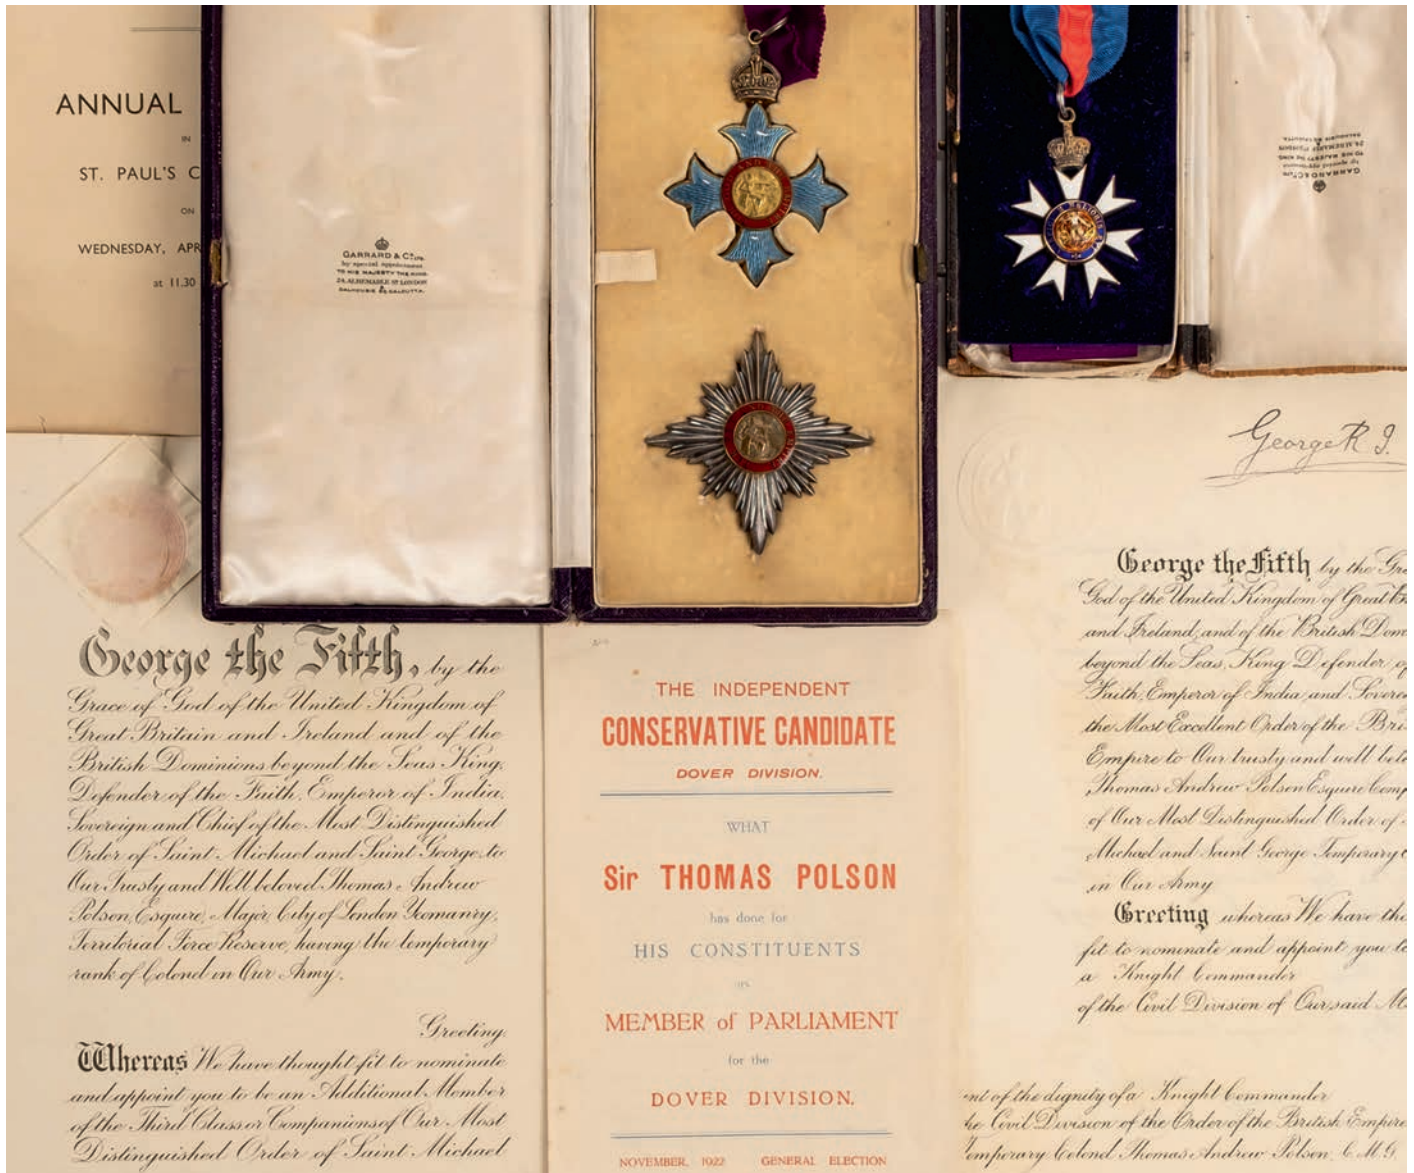 ANNUAL
IN
ST. PAUL'S C
ON
WEDNESDAY, APR
at 11.30
GARRARD & Co. LTD.
by special appointment
TO HIS MAJESTY THE KING
24, ALBEMARLE ST LONDON
&
DALHOUSIE SQ CALCUTTA.
GARRARD & Co. LTD.
by special appointment
TO HIS MAJESTY THE KING
24, ALBEMARLE ST LONDON
&
DALHOUSIE SQ CALCUTTA
George the Fifth, by the
Grace of God of the United Kingdom of
Great Britain and Ireland and of the
British Dominions beyond the Seas King,
Defender of the Faith, Emperor of India,
Sovereign and Chief of the Most Distinguished
Order of Saint Michael and Saint George, to
Our Trusty and Well beloved Thomas Andrew
Polson, Esquire, Major, City of London Yeomanry,
Territorial Force Reserve, having the temporary
rank of Colonel in Our Army.
Greeting.
Whereas We have thought fit to nominate
and appoint you to be an Additional Member
of the Third Class or Companions of Our Most
Distinguished Order of Saint Michael
THE INDEPENDENT
CONSERVATIVE CANDIDATE
DOVER DIVISION.
WHAT
Sir THOMAS POLSON
has done for
HIS CONSTITUENTS
as
MEMBER of PARLIAMENT
for the
DOVER DIVISION.
NOVEMBER, 1922 GENERAL ELECTION
George R I.
George the Fifth by the Gra
God of the United Kingdom of Great Br
and Ireland, and of the British Dom
beyond the Seas, King Defender of
Faith, Emperor of India and Sovere
the Most Excellent Order of the Bri
Empire to Our trusty and well bel
Thomas Andrew Polson Esquire Com
of Our Most Distinguished Order of
Michael and Saint George Temporary C
in Our Army
Greeting whereas We have tho
fit to nominate and appoint you to
a Knight Commander
of the Civil Division of Our said M
ent of the dignity of a Knight Commander
he Civil Division of the Order of the British Empire
Temporary Colonel Thomas Andrew Polson, C.M.G.